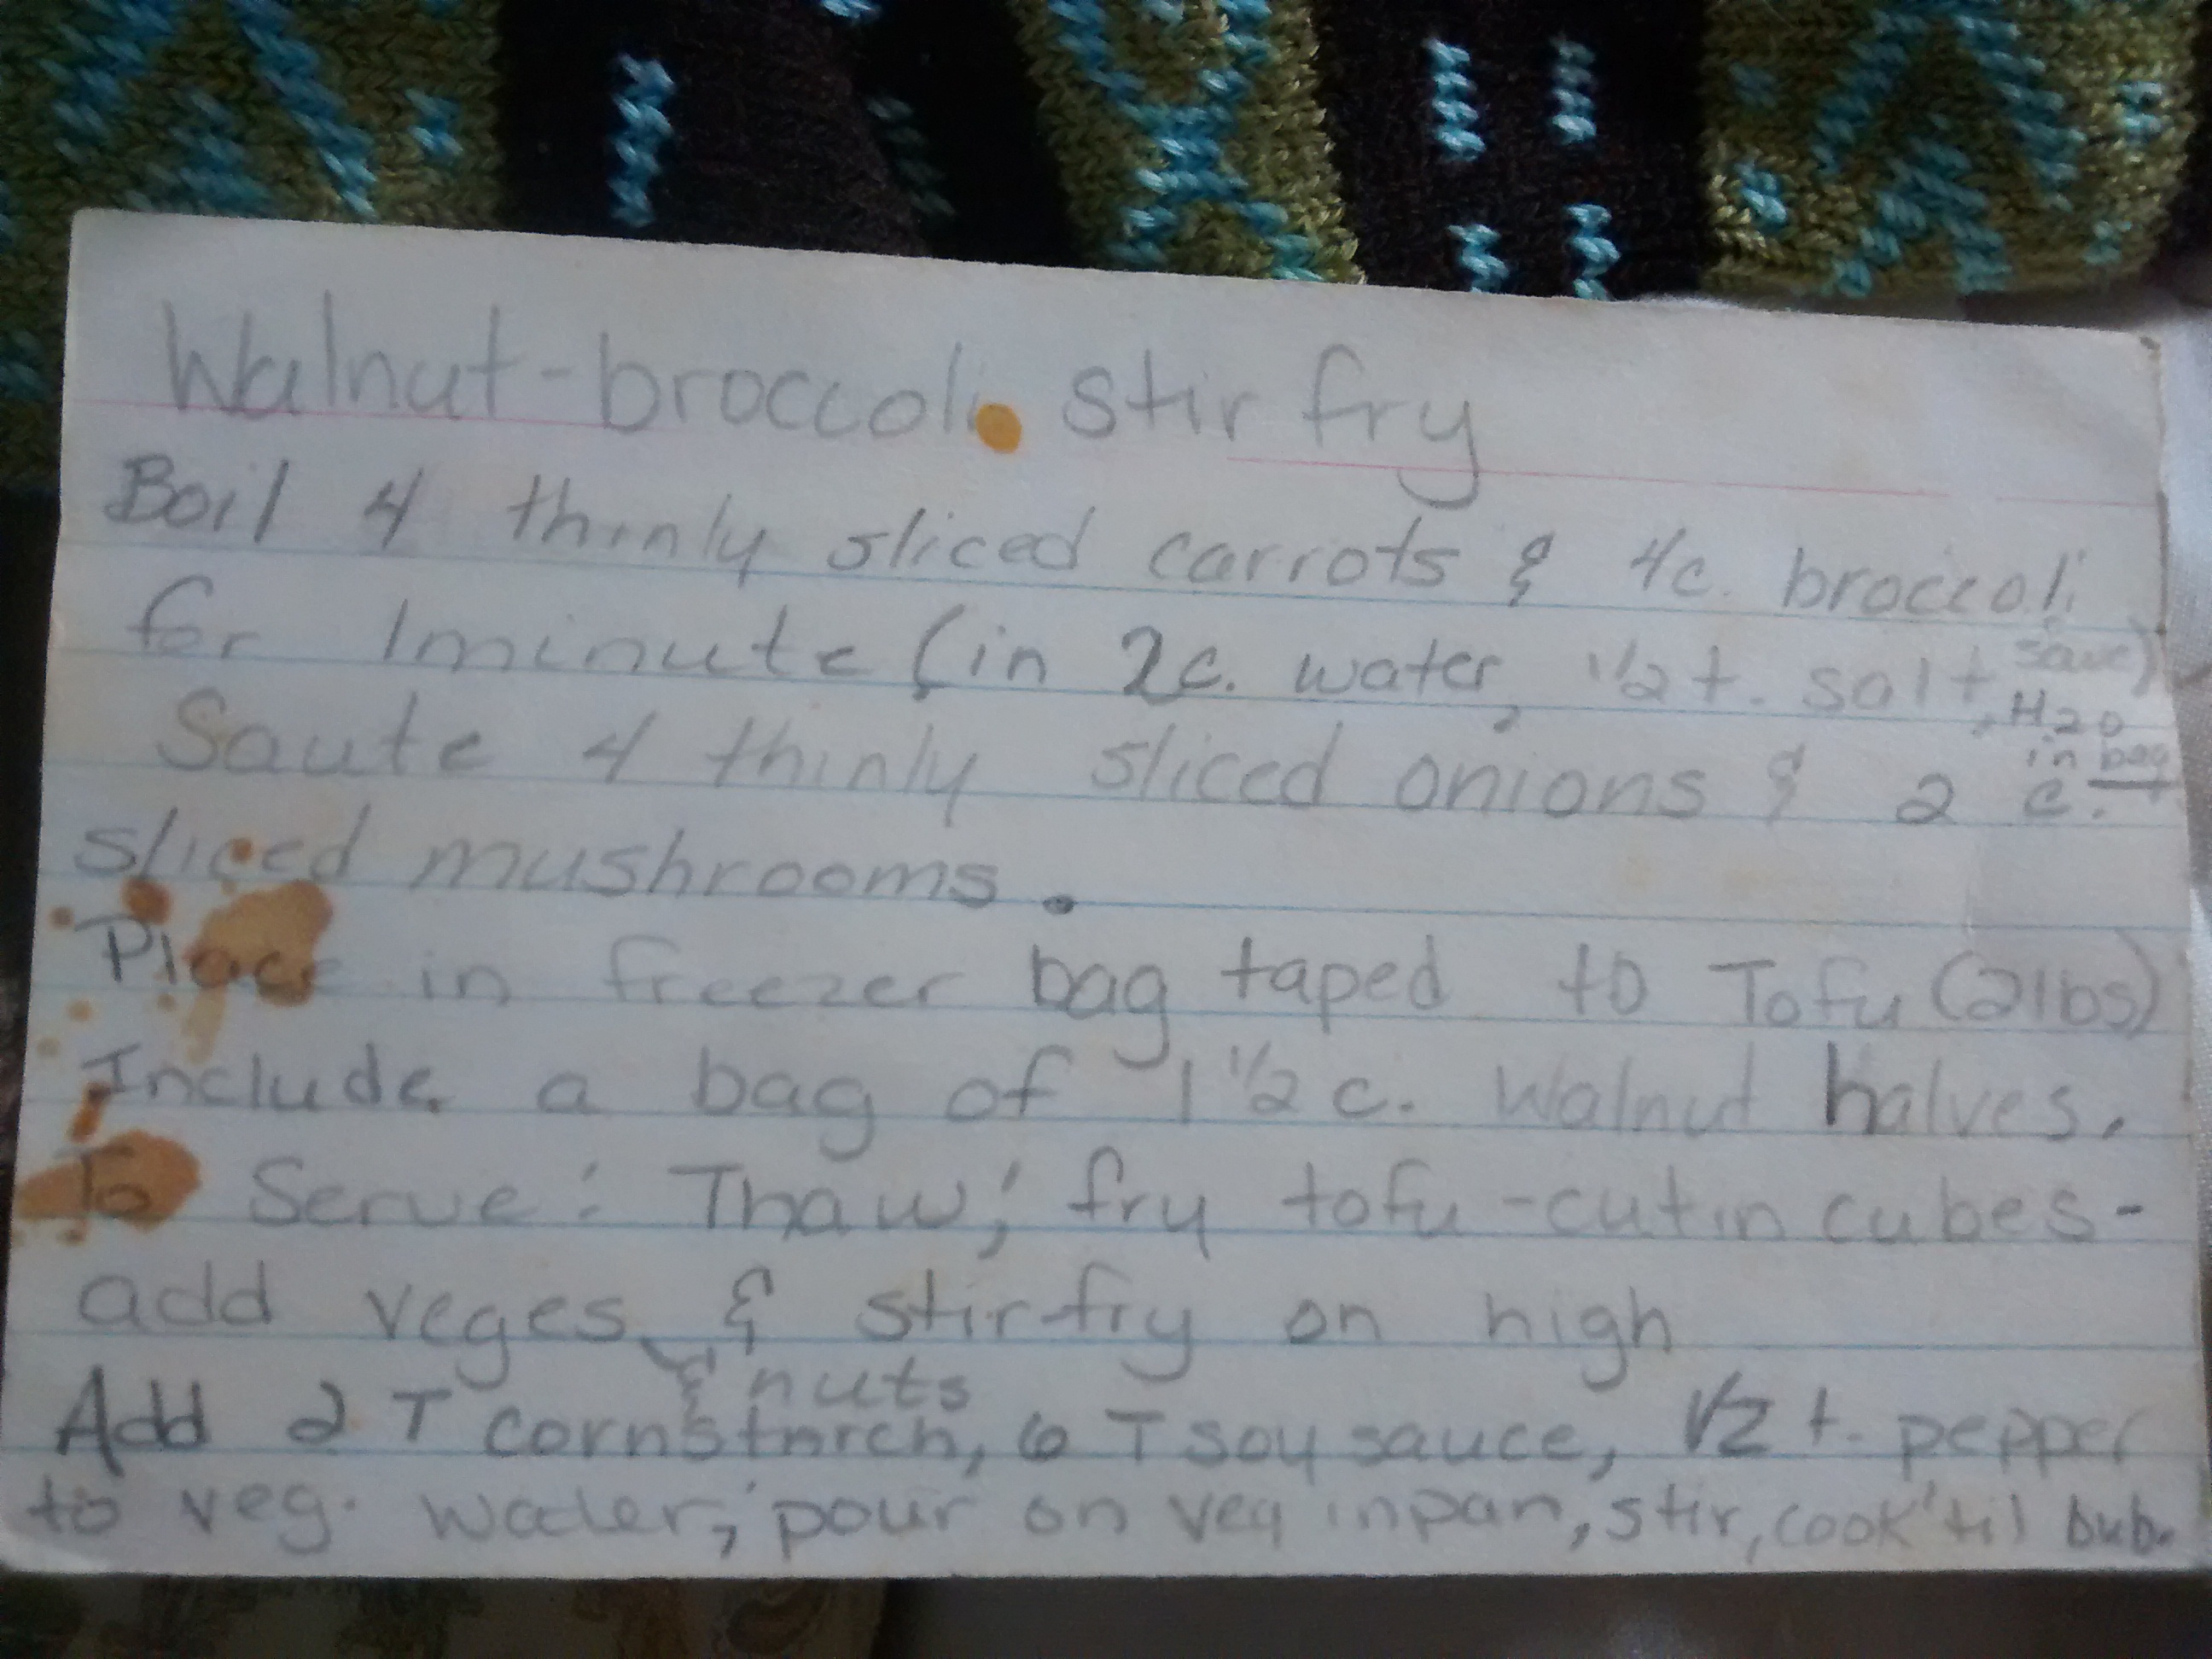 Walnut-broccoli stir fry
Boil 4 thinly sliced carrots & 4c. broccoli
for 1 minute (in 2c. water, 1/2 t. salt, save)
H2O
in bag
Saute 4 thinly sliced onions & 2 c.
sliced mushrooms.
Place in freezer bag taped to Tofu (2lbs)
Include a bag of 1 1/2 c. walnut halves.
To Serve: Thaw; fry tofu -cut in cubes-
add veges & stir-fry on high
& nuts
Add 2 T cornstarch, 6 T soy sauce, 1/2 t. pepper
to veg. water; pour on veg in pan, stir, cook 'til bub.